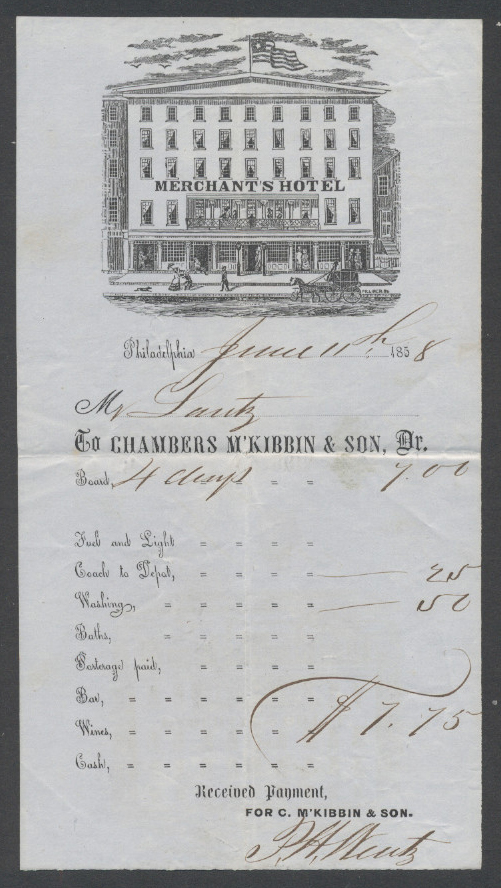 MERCHANT'S HOTEL
Philadelphia June 11th 1858
Mr Lantz
To CHAMBERS M'KIBBIN & SON, Dr.
Board, 4 days = = 7.00
Fuel and Light = = = =
Coach to Depot, = = = = 25
Washing, = = = = = 50
Baths, = = = = =
Porterage paid, = = = =
Bar, = = = = = =
Wines, = = = = = = $7.75
Cash, = = = = = =
Received Payment,
FOR C. M'KIBBIN & SON.